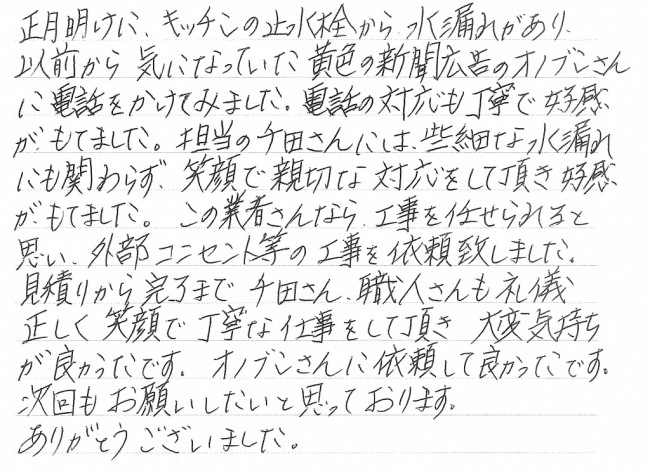 正月明けに、キッチンの止水栓から水漏れがあり、
以前から気になっていた黄色の新聞広告のオノブンさん
に電話をかけてみました。電話の対応も丁寧で好感
がもてました。担当の千田さんには、些細な水漏れ
にも関わらず、笑顔で親切な対応をして頂き好感
がもてました。この業者さんなら、工事を任せられると
思い、外部コンセント等の工事を依頼致しました。
見積りから完了まで千田さん、職人さんも礼儀
正しく笑顔で丁寧な仕事をして頂き大変気持ち
が良かったです。オノブンさんに依頼して良かったです。
次回もお願いしたいと思っております。
ありがとうございました。